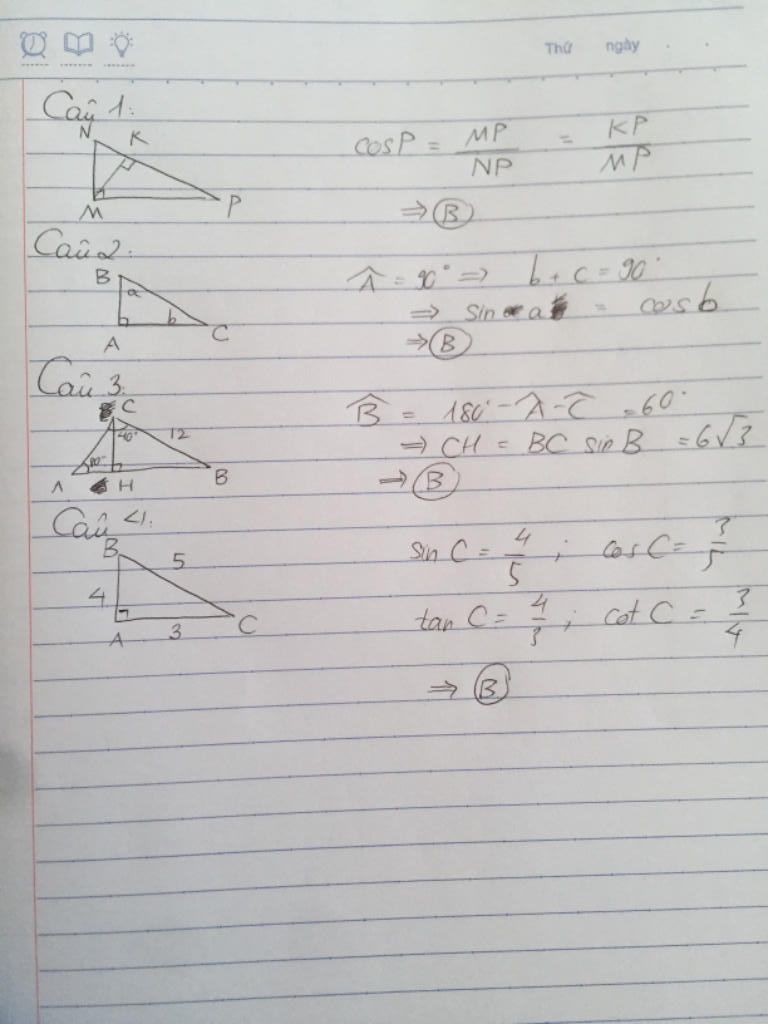 Thứ ngày
Câu 1:
N K
M P
cosP = MP/NP = KP/MP
⇒ B
Câu 2:
B
a
b
A C
Â = 90° ⇒ b + c = 90°
⇒ sin a = cos b
⇒ B
Câu 3:
C
40° 12
80°
A H B
B̂ = 180° - Â - Ĉ = 60°
⇒ CH = BC sin B = 6√3
⇒ B
Câu 4:
B 5
4
A 3 C
sin C = 4/5 ; cos C = 3/5
tan C = 4/3 ; cot C = 3/4
⇒ B